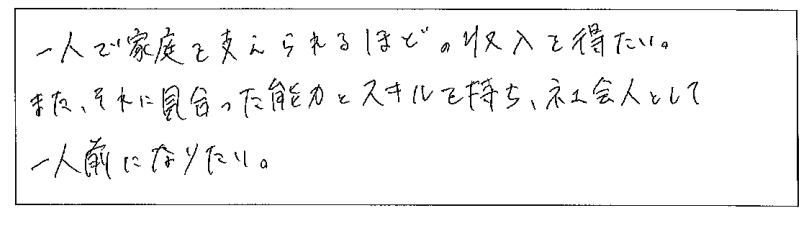 一人で家庭を支えられるほどの収入を得たい。
また、それに見合った能力とスキルを持ち、社会人として
一人前になりたい。